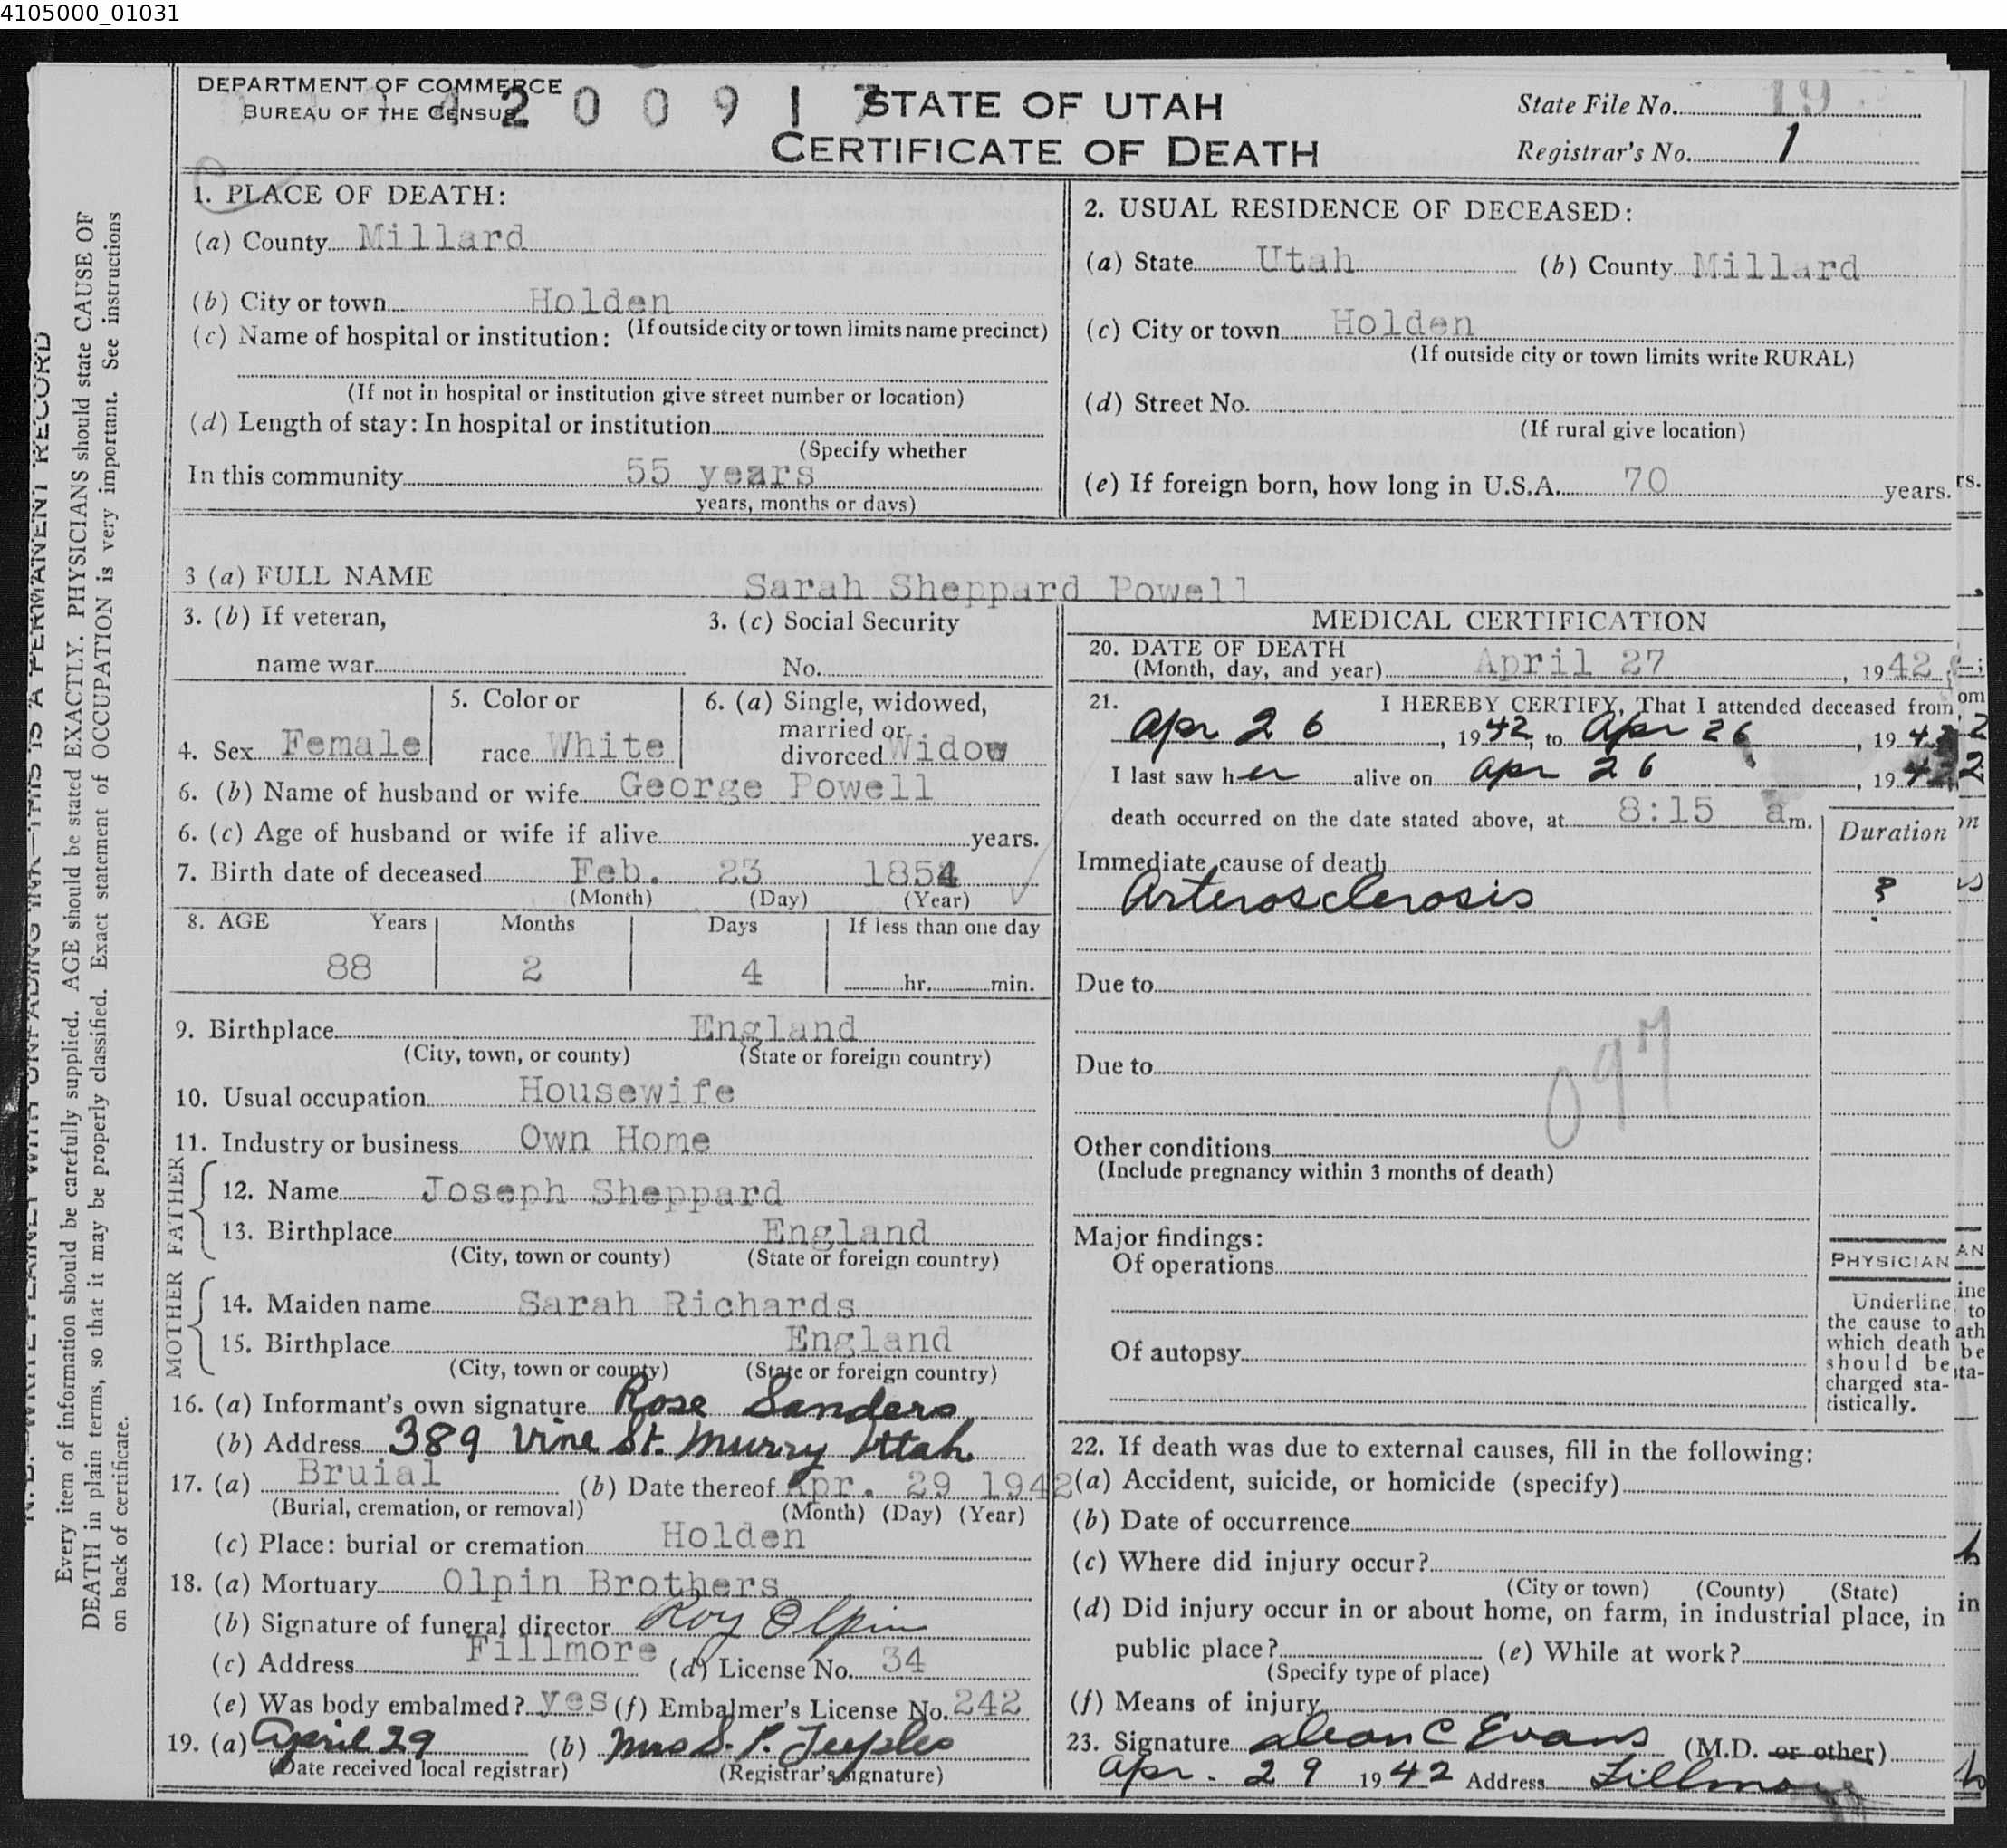 4105000_01031
DEPARTMENT OF COMMERCE
BUREAU OF THE CENSUS
4 2 0 0 9 1 7
STATE OF UTAH
CERTIFICATE OF DEATH
State File No. 19
Registrar's No. 1
1. PLACE OF DEATH:
(a) County Millard
(b) City or town Holden
(c) Name of hospital or institution: (If outside city or town limits name precinct)
(If not in hospital or institution give street number or location)
(d) Length of stay: In hospital or institution
(Specify whether
In this community 55 years
years, months or days)
2. USUAL RESIDENCE OF DECEASED:
(a) State Utah (b) County Millard
(c) City or town Holden
(If outside city or town limits write RURAL)
(d) Street No.
(If rural give location)
(e) If foreign born, how long in U.S.A. 70 years.
3 (a) FULL NAME Sarah Sheppard Powell
3. (b) If veteran, 3. (c) Social Security
name war No.
4. Sex Female
5. Color or
race White
6. (a) Single, widowed,
married or
divorced Widow
6. (b) Name of husband or wife George Powell
6. (c) Age of husband or wife if alive years.
7. Birth date of deceased Feb. 23 1854
(Month) (Day) (Year)
8. AGE Years Months Days If less than one day
88 2 4 hr. min.
9. Birthplace England
(City, town, or county) (State or foreign country)
10. Usual occupation Housewife
11. Industry or business Own Home
FATHER
12. Name Joseph Sheppard
13. Birthplace England
(City, town or county) (State or foreign country)
MOTHER
14. Maiden name Sarah Richards
15. Birthplace England
(City, town or county) (State or foreign country)
16. (a) Informant's own signature Rose Sanders
(b) Address 389 Vine St. Murry Utah
17. (a) Bruial (b) Date thereof Apr. 29 1942
(Burial, cremation, or removal) (Month) (Day) (Year)
(c) Place: burial or cremation Holden
18. (a) Mortuary Olpin Brothers
(b) Signature of funeral director Roy Olpin
(c) Address Fillmore (d) License No. 34
(e) Was body embalmed? yes (f) Embalmer's License No. 242
19. (a) April 29 (b) Mrs S. P. Teeples
(Date received local registrar) (Registrar's signature)
MEDICAL CERTIFICATION
20. DATE OF DEATH
(Month, day, and year) April 27, 1942
21. I HEREBY CERTIFY, That I attended deceased from
Apr 26, 1942, to Apr 26, 1942
I last saw her alive on Apr 26, 1942
death occurred on the date stated above, at 8:15 a m.
Duration
Immediate cause of death
Arterosclerosis ?
Due to
Due to
097
Other conditions
(Include pregnancy within 3 months of death)
Major findings:
Of operations
Of autopsy
PHYSICIAN
Underline
the cause to
which death
should be
charged sta-
tistically.
22. If death was due to external causes, fill in the following:
(a) Accident, suicide, or homicide (specify)
(b) Date of occurrence
(c) Where did injury occur?
(City or town) (County) (State)
(d) Did injury occur in or about home, on farm, in industrial place, in
public place? (e) While at work?
(Specify type of place)
(f) Means of injury
23. Signature Dean C Evans (M.D. or other)
Apr. 29 1942 Address Fillmore
N.B. WRITE PLAINLY WITH UNFADING INK—THIS IS A PERMANENT RECORD
Every item of information should be carefully supplied. AGE should be stated EXACTLY. PHYSICIANS should state CAUSE OF
DEATH in plain terms, so that it may be properly classified. Exact statement of OCCUPATION is very important. See instructions
on back of certificate.